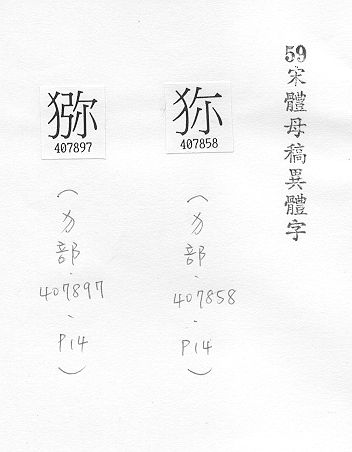 59宋體母稿異體字
狝
407858
（犭部．407858．P14）
猕
407897
（犭部．407897．P14）